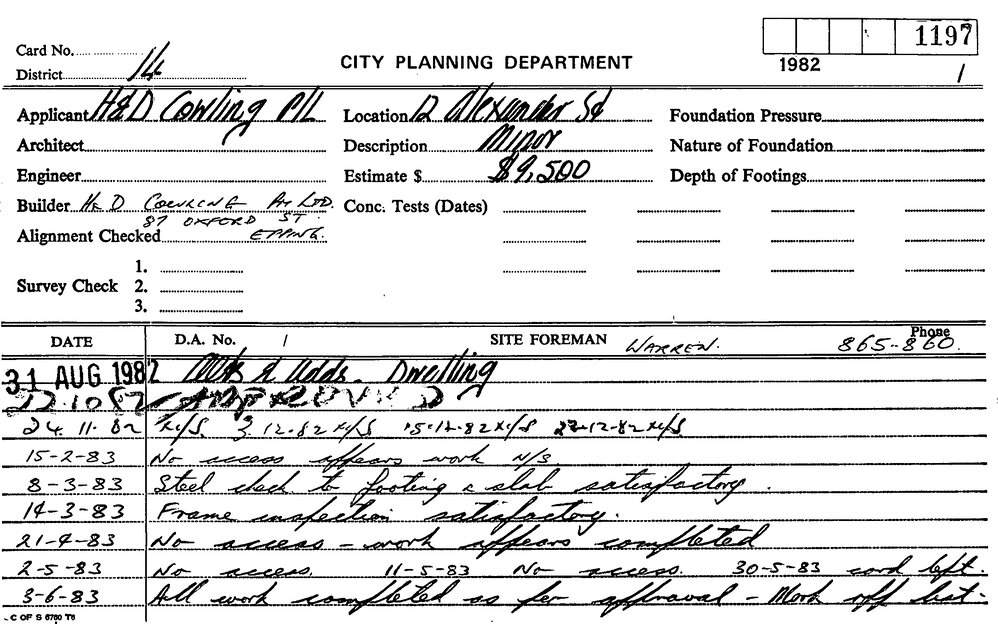 1197
Card No.
District 14
CITY PLANNING DEPARTMENT
1982
1
Applicant H&D Cowling P/L Location 12 Alexander St Foundation Pressure
Architect Description Minor Nature of Foundation
Engineer Estimate $ $9,500 Depth of Footings
Builder H & D COWLING Pty LTD. Conc. Tests (Dates)
87 OXFORD ST.
Alignment Checked EPPING.
1.
Survey Check 2.
3.
DATE D.A. No. / SITE FOREMAN WARREN. Phone 865-860.
31 AUG 1982 Alts & Adds. Dwelling
22.10 82 APPROVED
24. 11. 82 N/S. 3.12.82 N/S 15-12-82 N/S 22-12-82 N/S
15-2-83 No access appears work N/S
8-3-83 Steel check to footing & slab satisfactory.
14-3-83 Frame inspection satisfactory.
21-4-83 No access - work appears completed
2-5-83 No access. 11-5-83 No access. 30-5-83 card left.
3-6-83 All work completed as per approval - Mark off list.
C OF S 6760 T6